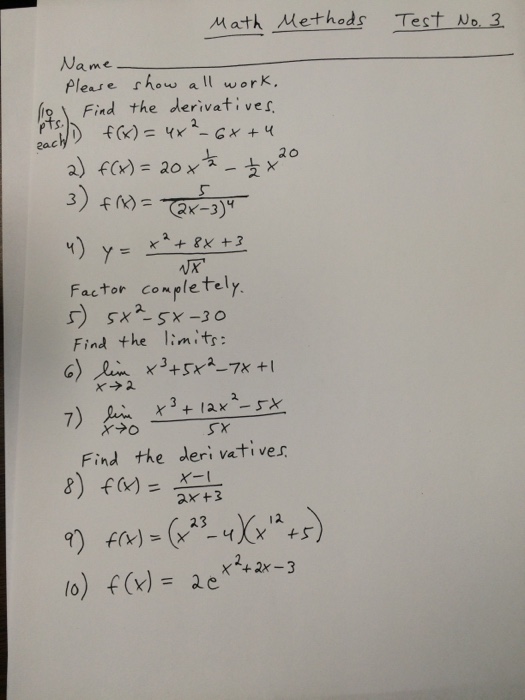 Math Methods Test No. 3
Name
Please show all work.
(10 pts. each) Find the derivatives.
1) f(x) = 4x² - 6x + 4
2) f(x) = 20x^(1/2) - 1/2 x^20
3) f(x) = 5/(2x-3)⁴
4) y = (x² + 8x + 3)/√x
Factor completely.
5) 5x² - 5x - 30
Find the limits:
6) lim x→2 x³ + 5x² - 7x + 1
7) lim x→0 (x³ + 12x² - 5x)/(5x)
Find the derivatives.
8) f(x) = (x-1)/(2x+3)
9) f(x) = (x^23 - 4)(x^12 + 5)
10) f(x) = 2e^(x²+2x-3)